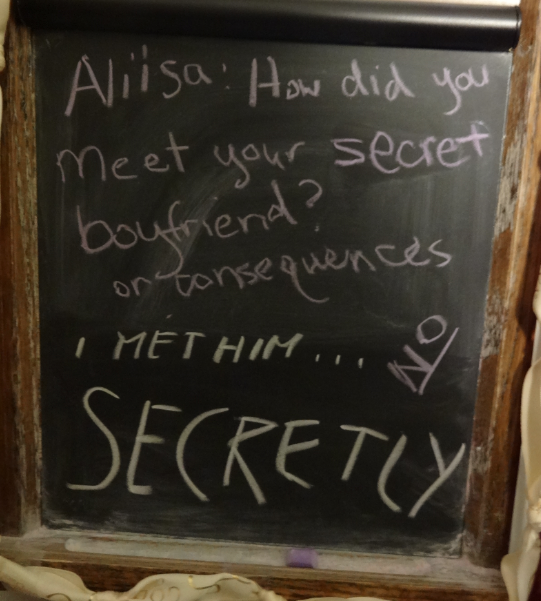 Aliisa: How did you
meet your secret
boyfriend?
or consequences
I MET HIM...
NO
SECRETLY